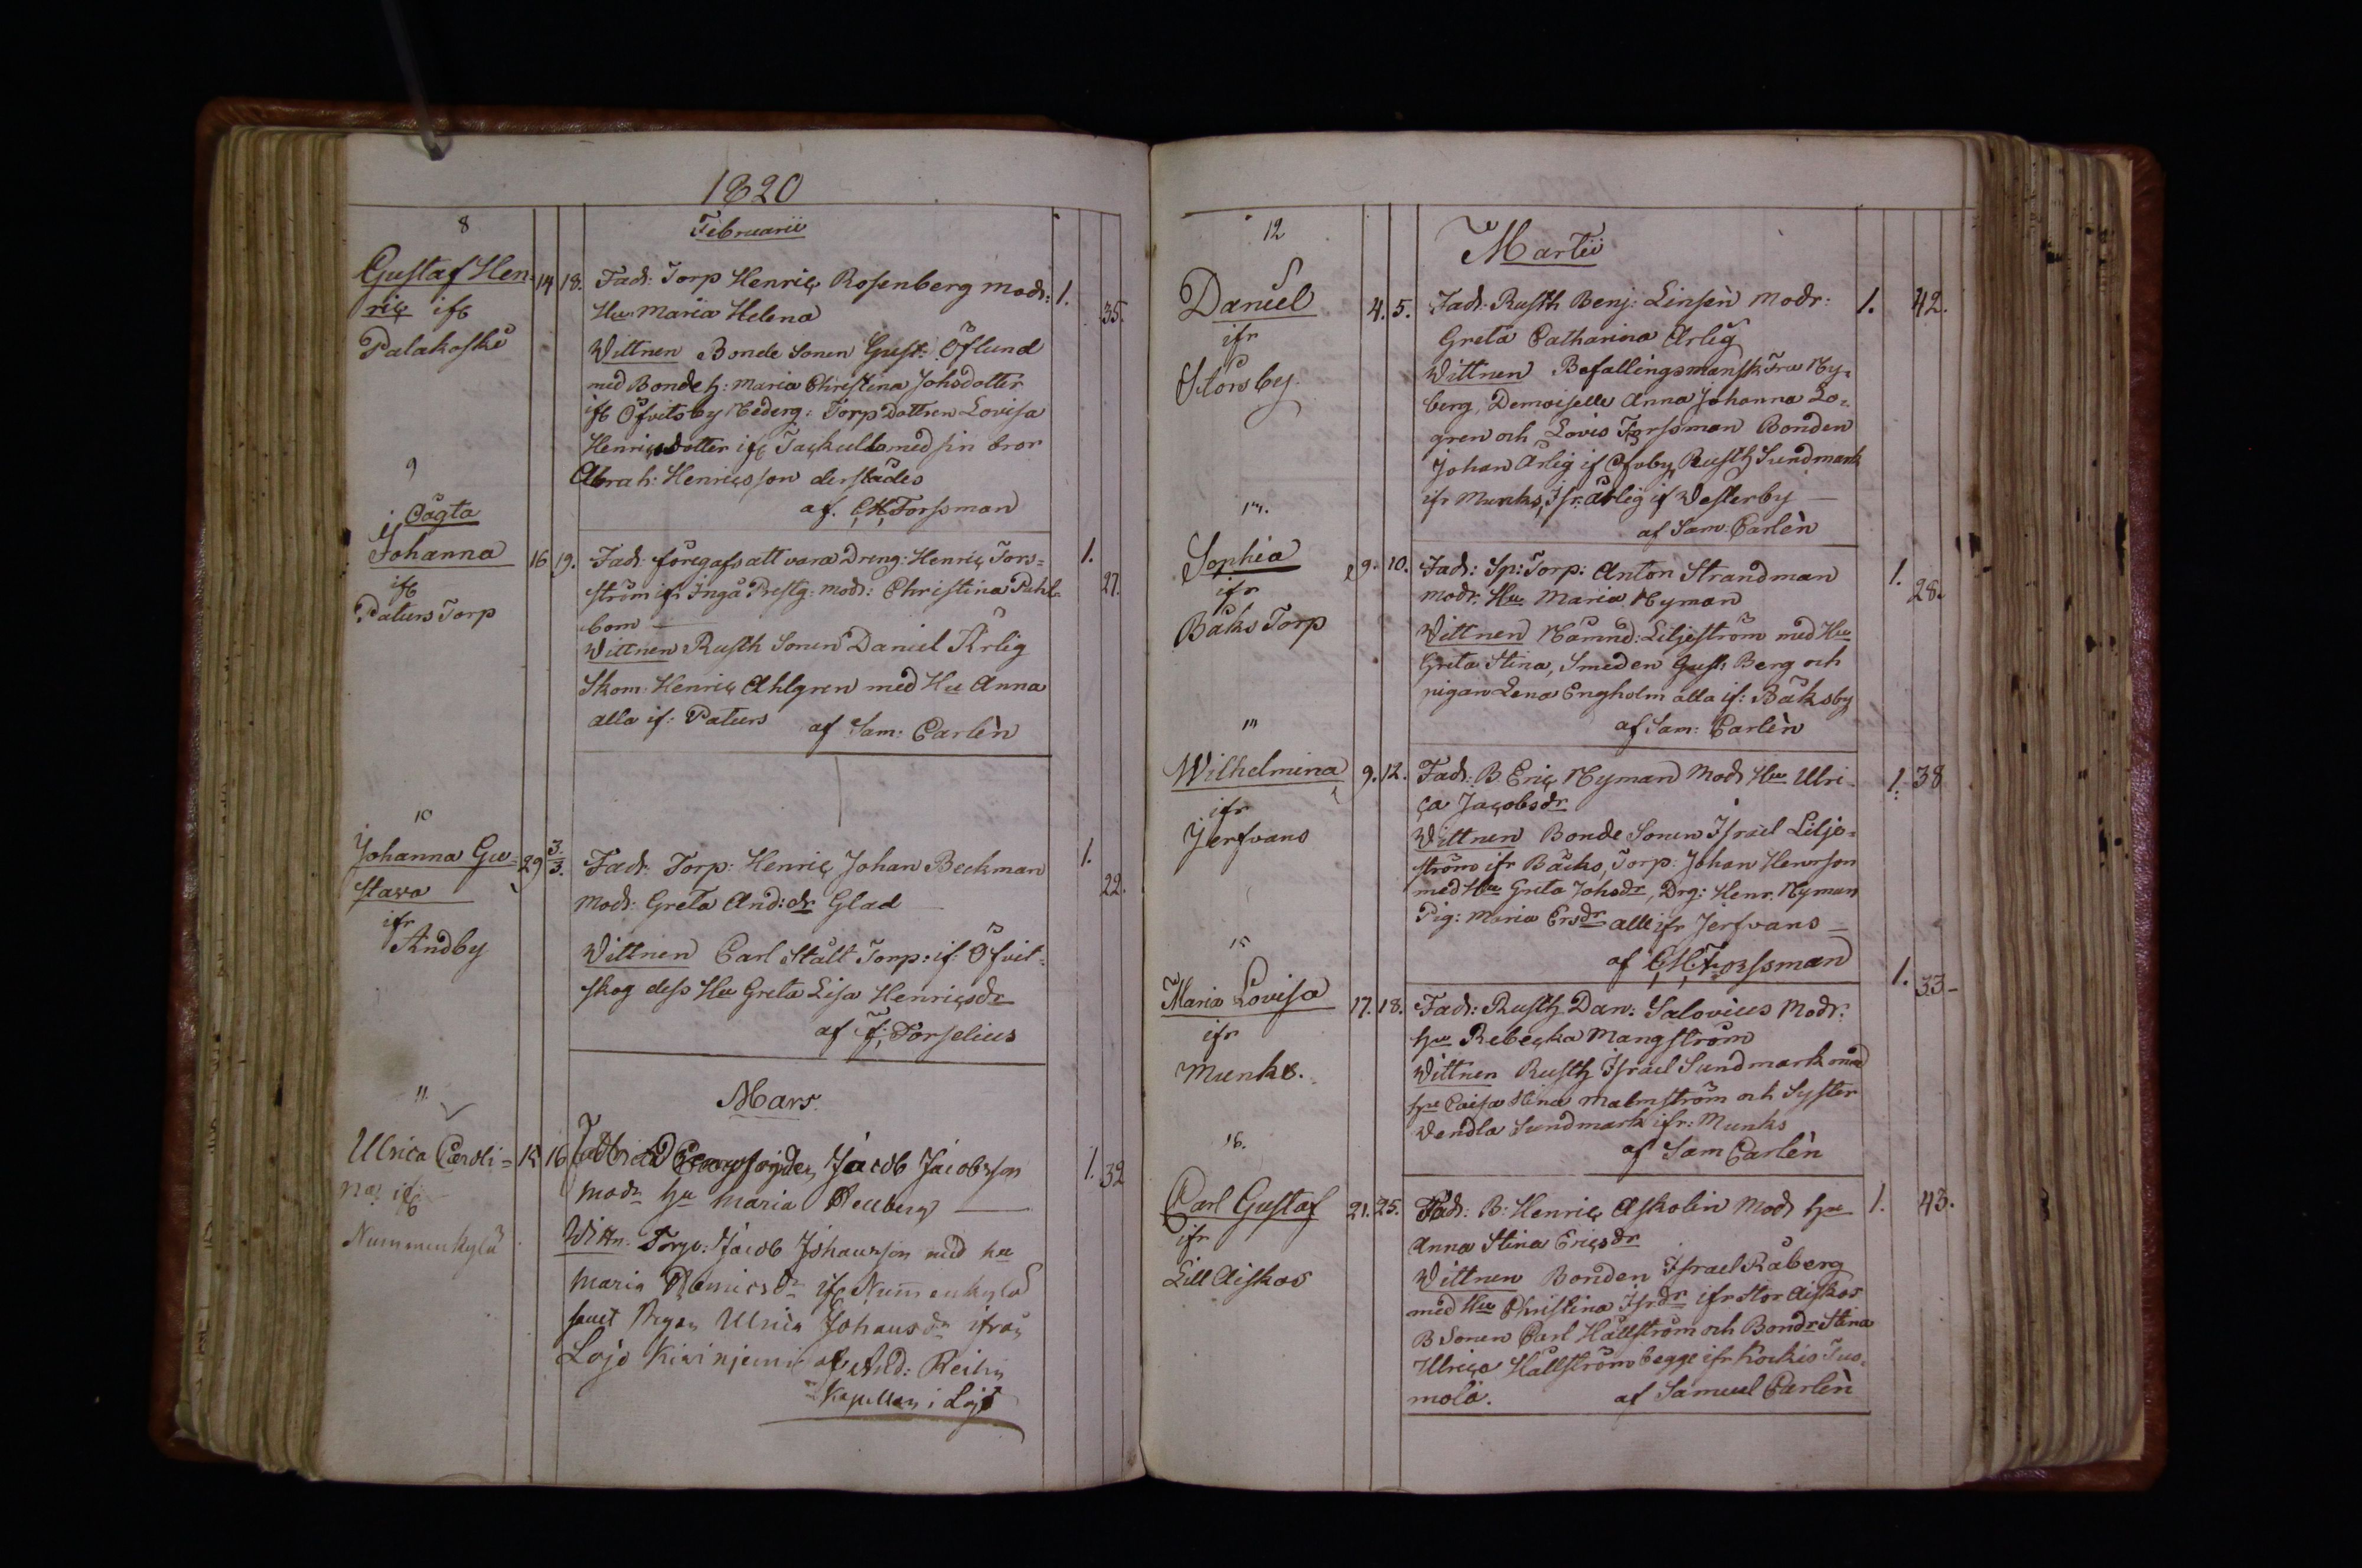 1820
8
Februarii
Gustaf Hen-
ric ifr
Palakoski
14 18. Fadr: Torp Henric Rosenberg modr: 1. 35.
Hu Maria Helena
Vittnen Bonde Sonen Gust: Öflund
med Bonde h: Maria Christina Johsdotter
ifr Öfvitsby Nederg: Torp Dottren Lovisa
Henricsdotter ifr Tackulla med sin bror
Abrah: Henricsson derstädes
af. C.H. Forssman
9
Oägta
Johanna
ifr
Paturs Torp
16 19. Fadr: föregafs att vara Dreng: Henric Fors= 1. 27.
ström ifr Ingå Prestg: modr: Christina Pahl-
bom
Vittnen Rusth Sonen Daniel Ärlig
Skom: Henric Ahlgren med Hu Anna
alla if: Paturs
af Sam: Carlèn
10
Johanna Gu=
stava
ifr
Andby
29 3/3. Fadr: Torp: Henric Johan Beckman 1. 22.
Modr: Greta And:dr Glad
Vittnen Carl Stålt Torp: if: Öfvit-
skog dess Hu Greta Lisa Henricsdr
af F: Forselius
Mars.
11
Ulrica Caroli=
na ifr
Nummenkylä
15 16 Jacob Jacobsson 1. 32
modr hu Maria
Wittn: Torp: Jacob Johansson med hu
Maria Henricsdr ifr Nummenkylä
samt Pigan Ulrica Johansdr ifrån
Lojo Kivinjemi af And:
Kapellan i Lojo
12
Martii
Daniel
ifr
Störsby
4. 5. Fadr: Rusth Benj: Linsèn Modr: 1. 42.
Greta Catharina Ärlig
Vittnen Befallingsmansk Fru Ny=
berg, Demoiselle Anna Johanna Lo=
gren och Lovis Forssman Bonden
Johan Ärlig if Ofvby Rusth Sundmark
ifr Munks, Isr: Ärlig if Westerby
af Sam: Carlèn
Sophia
ifr
Bäks Torp
9. 10. Fadr: Sp: Torp: Anton Strandman 1. 28.
modr. Hu Maria Nyman
Vittnen Nämnd: Liljeström med Hu
Greta Stina, Smeden Gust: Berg och
pigan Lena Engholm alla if: Bäksby
af Sam: Carlèn
Wilhelmina
ifr
Jerfvans
9. 12. Fadr: B Eric Nyman Modr Hu Ulri- 1. 38
ca Jacobsdr
Vittnen Bonde Sonen Israel Lilje=
ström ifr Bäcks, Torp: Johan Henrsson
med Hu Greta Johsdr, Drg: Henr: Nyman
Pig: Maria Ersdr alle ifr Jerfvans
af C.H. Forssman
15
Maria Lovisa
ifr
Munks.
17. 18. Fadr: Rusth Dan: Salovius Modr: 1. 33-
hu Rebecka Mangström
Vittnen Rusth Israel Sundmark med
hu Caisa Stina Malmström och Syster
Vendla Sundmark ifr: Munks
af Sam Carlèn
16.
Carl Gustaf
ifr
Lill Aiskos
21. 25. Fadr: B: Henric Askolin Modr hu 1. 43.
Anna Stina Ericsdr
Vittnen Bonden Israel Råberg
med Hu Christina Isr:dr ifr Stor Aiskos
B Sonen Carl Hällström och Bondr Stina
Ulrica Hällström begge ifr Kockis Tus-
mola.
af Samuel Carlèn